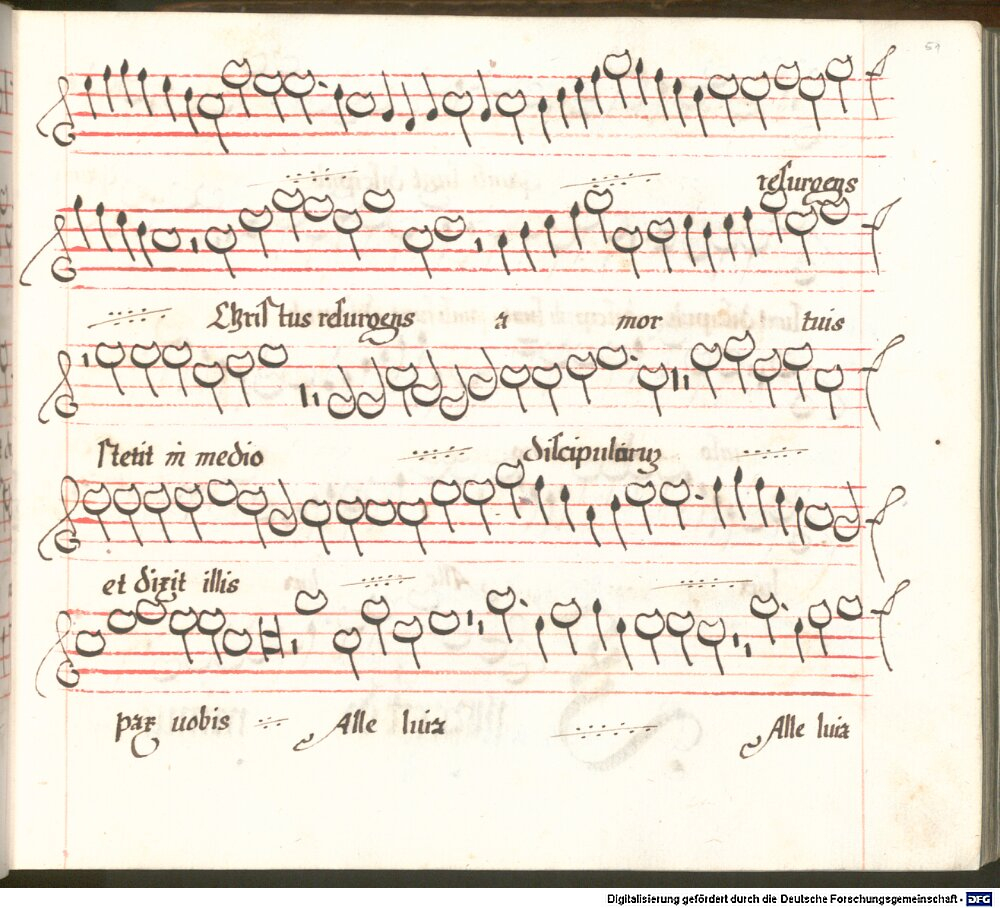 51
resurgens
Christus resurgens a mor tuis
stetit in medio discipulorum
et dixit illis
pax uobis Alle luia Alle luia
Digitalisierung gefördert durch die Deutsche Forschungsgemeinschaft - DFG